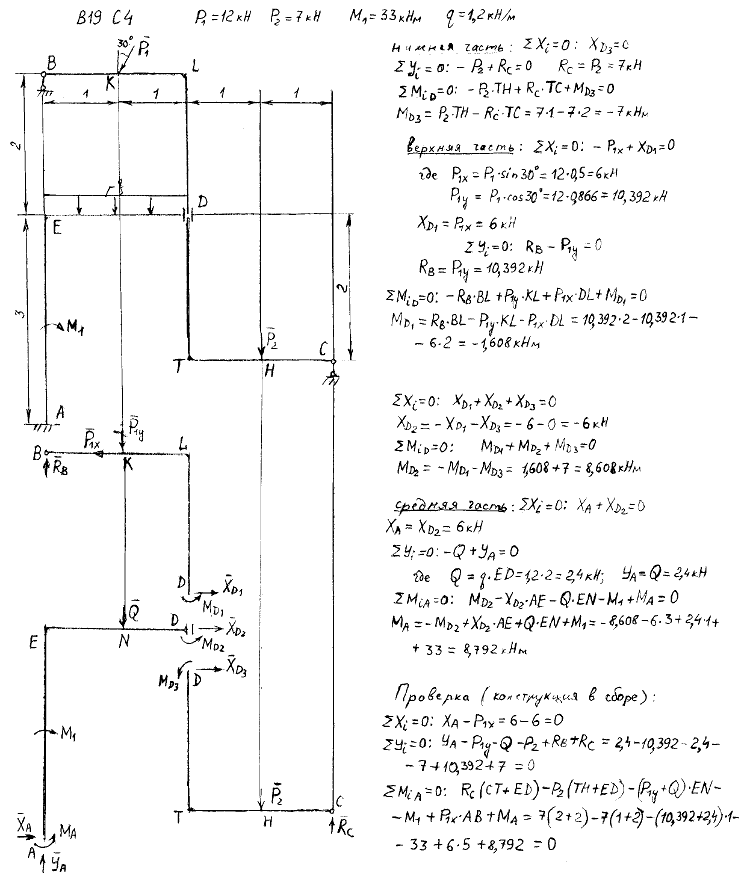 B19 C4 P₁=12кН P₂=7кН M₁=33кНм q=1,2кН/м
30° P̄₁
B K L
1 1 1 1
2
Г D
E
2
3
M₁
P̄₂
T H C
A
P̄₁ₓ P̄₁y
B R̄_B K L
D X̄_D1
M_D1
Q̄
E N D X̄_D2
M_D2
X̄_D3
M_D3 D
M₁
P̄₂
T H C
R̄_C
X̄_A M_A
A Ȳ_A
нижняя часть: ΣXi=0: X_D3=0
ΣYi=0: -P₂+R_C=0 R_C=P₂=7кН
ΣM_iD=0: -P₂·TH+R_C·TC+M_D3=0
M_D3=P₂·TH-R_C·TC=7·1-7·2=-7кНм
верхняя часть: ΣXi=0: -P₁ₓ+X_D1=0
где P₁ₓ=P₁·sin30°=12·0,5=6кН
P₁y=P₁·cos30°=12·0,866=10,392кН
X_D1=P₁ₓ=6кН
ΣYi=0: R_B-P₁y=0
R_B=P₁y=10,392кН
ΣM_iD=0: -R_B·BL+P₁y·KL+P₁ₓ·DL+M_D1=0
M_D1=R_B·BL-P₁y·KL-P₁ₓ·DL=10,392·2-10,392·1-
-6·2=-1,608кНм
ΣXi=0: X_D1+X_D2+X_D3=0
X_D2=-X_D1-X_D3=-6-0=-6кН
ΣM_iD=0: M_D1+M_D2+M_D3=0
M_D2=-M_D1-M_D3=1,608+7=8,608кНм
средняя часть: ΣXi=0: X_A+X_D2=0
X_A=X_D2=6кН
ΣYi=0: -Q+Y_A=0
где Q=q·ED=1,2·2=2,4кН; Y_A=Q=2,4кН
ΣM_iA=0: M_D2-X_D2·AE-Q·EN-M₁+M_A=0
M_A=-M_D2+X_D2·AE+Q·EN+M₁=-8,608-6·3+2,4·1+
+33=8,792кНм
Проверка (конструкция в сборе):
ΣXi=0: X_A-P₁ₓ=6-6=0
ΣYi=0: Y_A-P₁y-Q-P₂+R_B+R_C=2,4-10,392-2,4-
-7+10,392+7=0
ΣM_iA=0: R_C(CT+ED)-P₂(TH+ED)-(P₁y+Q)·EN-
-M₁+P₁ₓ·AB+M_A=7(2+2)-7(1+2)-(10,392+2,4)·1-
-33+6·5+8,792=0